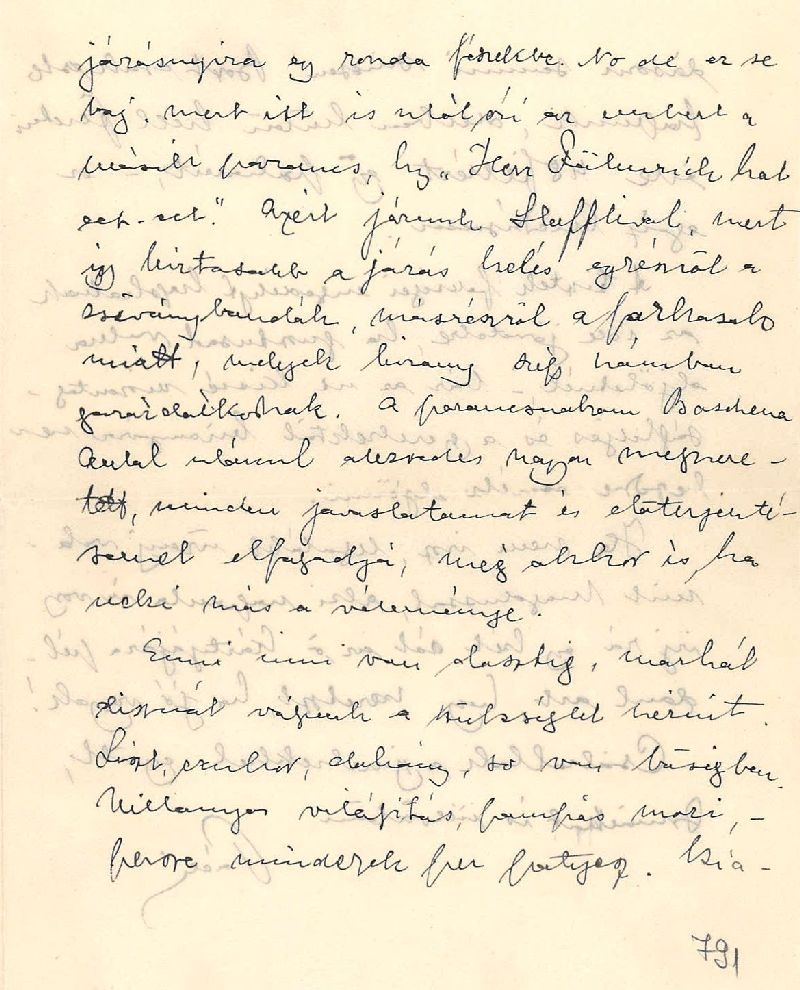 járásnyira egy ronda fészekbe. No de ez se
baj. mert itt is utól éri az embert a
másik parancs, hgy „Herr Fülmrich hat
etc. etc." Azért járunk Stafflival, mert
így biztosabb a járás kelés egyrészről a
zsiványbandák, másrészről a farkasok
miatt, melyek bizony szép számban
garázdálkodnak. A parancsnokom Boschena
Antal alezredes nagyon megszere-
tett, minden javaslatomat és előterjeszté-
semet elfogadja, még akkor is, ha
neki más a véleménye.
Enni inni van dasztig, marhát
disznót vágunk a szükséglet szerint.
Liszt, czukor, dohány, só van bőségben.
Villanyos világítás, pompás mozi, –
persze mindezek per . Kia-
791